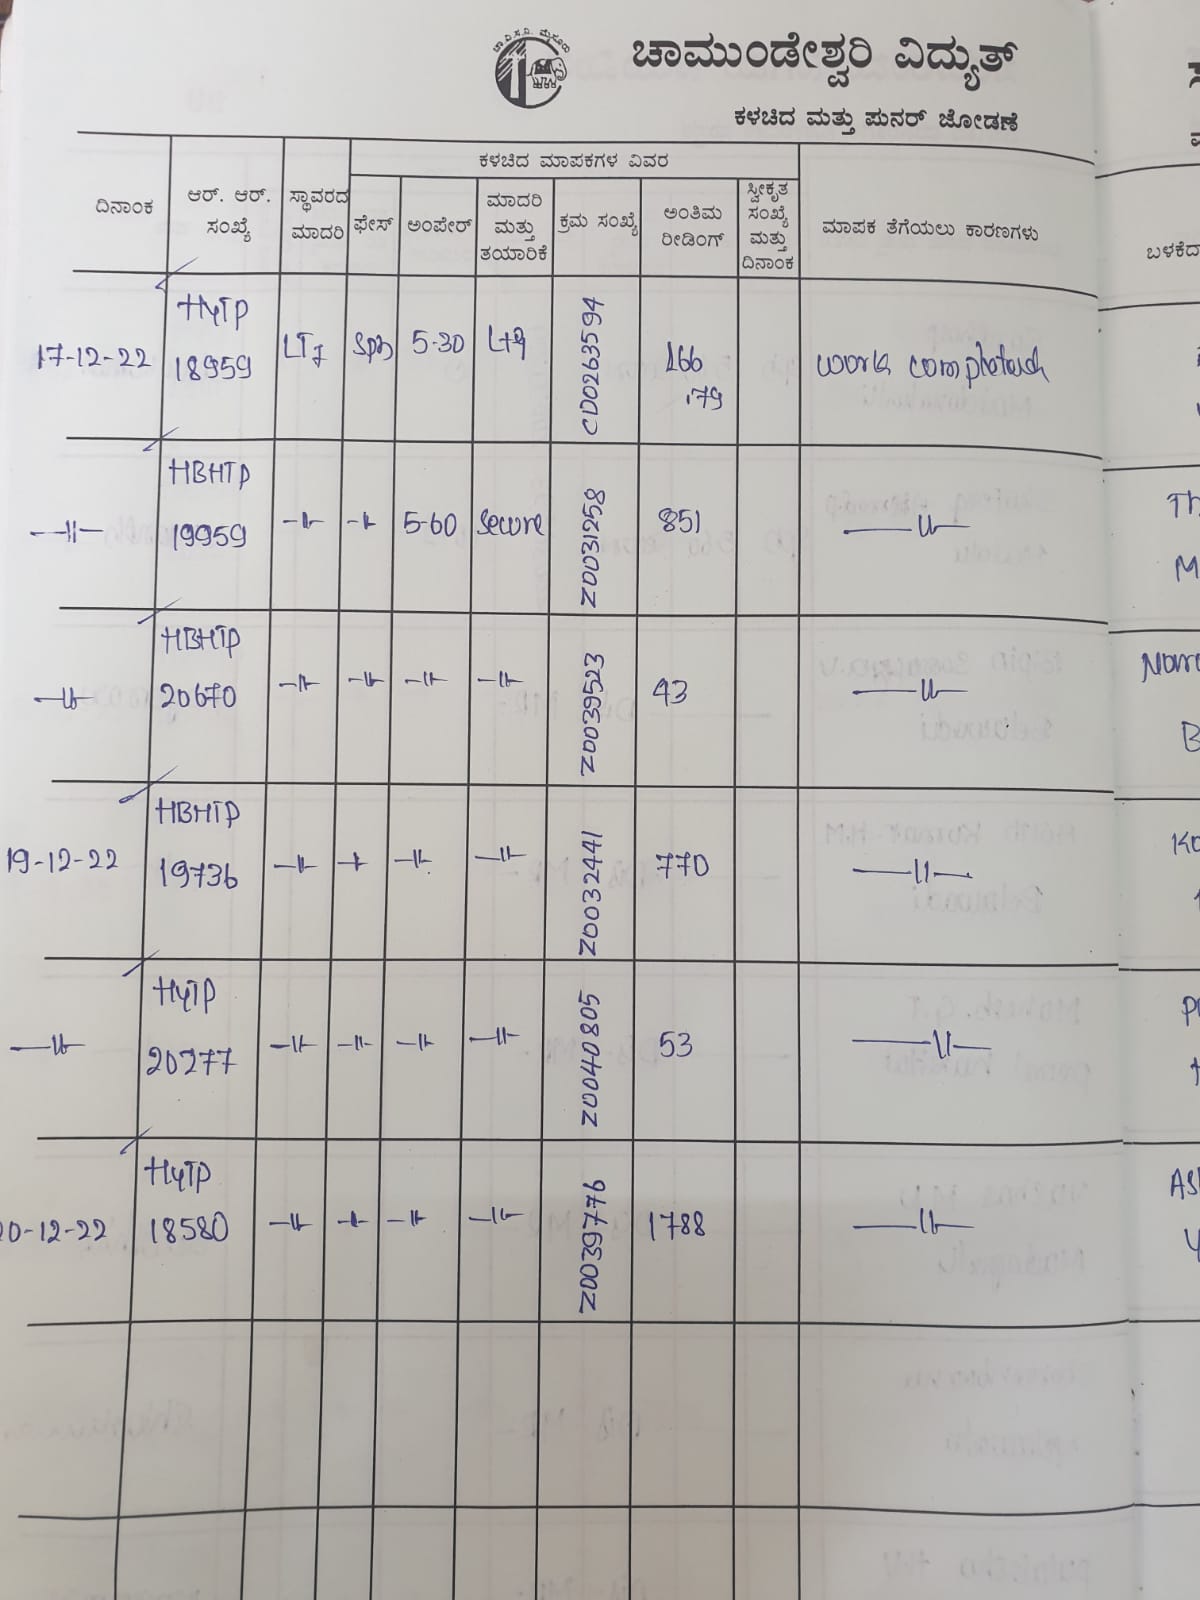 ಚಾ.ವಿ.ಸ.ನಿ. ಮೈಸೂರು
ಚಾಮುಂಡೇಶ್ವರಿ ವಿದ್ಯುತ್
ಕಳಚಿದ ಮತ್ತು ಪುನರ್ ಜೋಡಣೆ
ಕಳಚಿದ ಮಾಪಕಗಳ ವಿವರ
ದಿನಾಂಕ ಆರ್. ಆರ್. ಸಂಖ್ಯೆ ಸ್ಥಾವರದ ಮಾದರಿ ಫೇಸ್ ಅಂಪೇರ್ ಮಾದರಿ ಮತ್ತು ತಯಾರಿಕೆ ಕ್ರಮ ಸಂಖ್ಯೆ ಅಂತಿಮ ರೀಡಿಂಗ್ ಸ್ವೀಕೃತ ಸಂಖ್ಯೆ ಮತ್ತು ದಿನಾಂಕ ಮಾಪಕ ತೆಗೆಯಲು ಕಾರಣಗಳು
17-12-22 HYTP 18959 LT7 5-30 L+G CD0263594 266 .79 work completed
—11— HBHTP 19959 —11— —11— 5-60 Secure Z0031258 851 —11—
—11— HBHTP 20670 —11— —11— —11— —11— Z0039523 43 —11—
19-12-22 HBHTP 19736 —11— —11— —11— —11— Z0032441 770 —11—
—11— HYTP 20277 —11— —11— —11— —11— Z0040805 53 —11—
20-12-22 HYTP 18580 —11— —11— —11— —11— Z0039776 1788 —11—